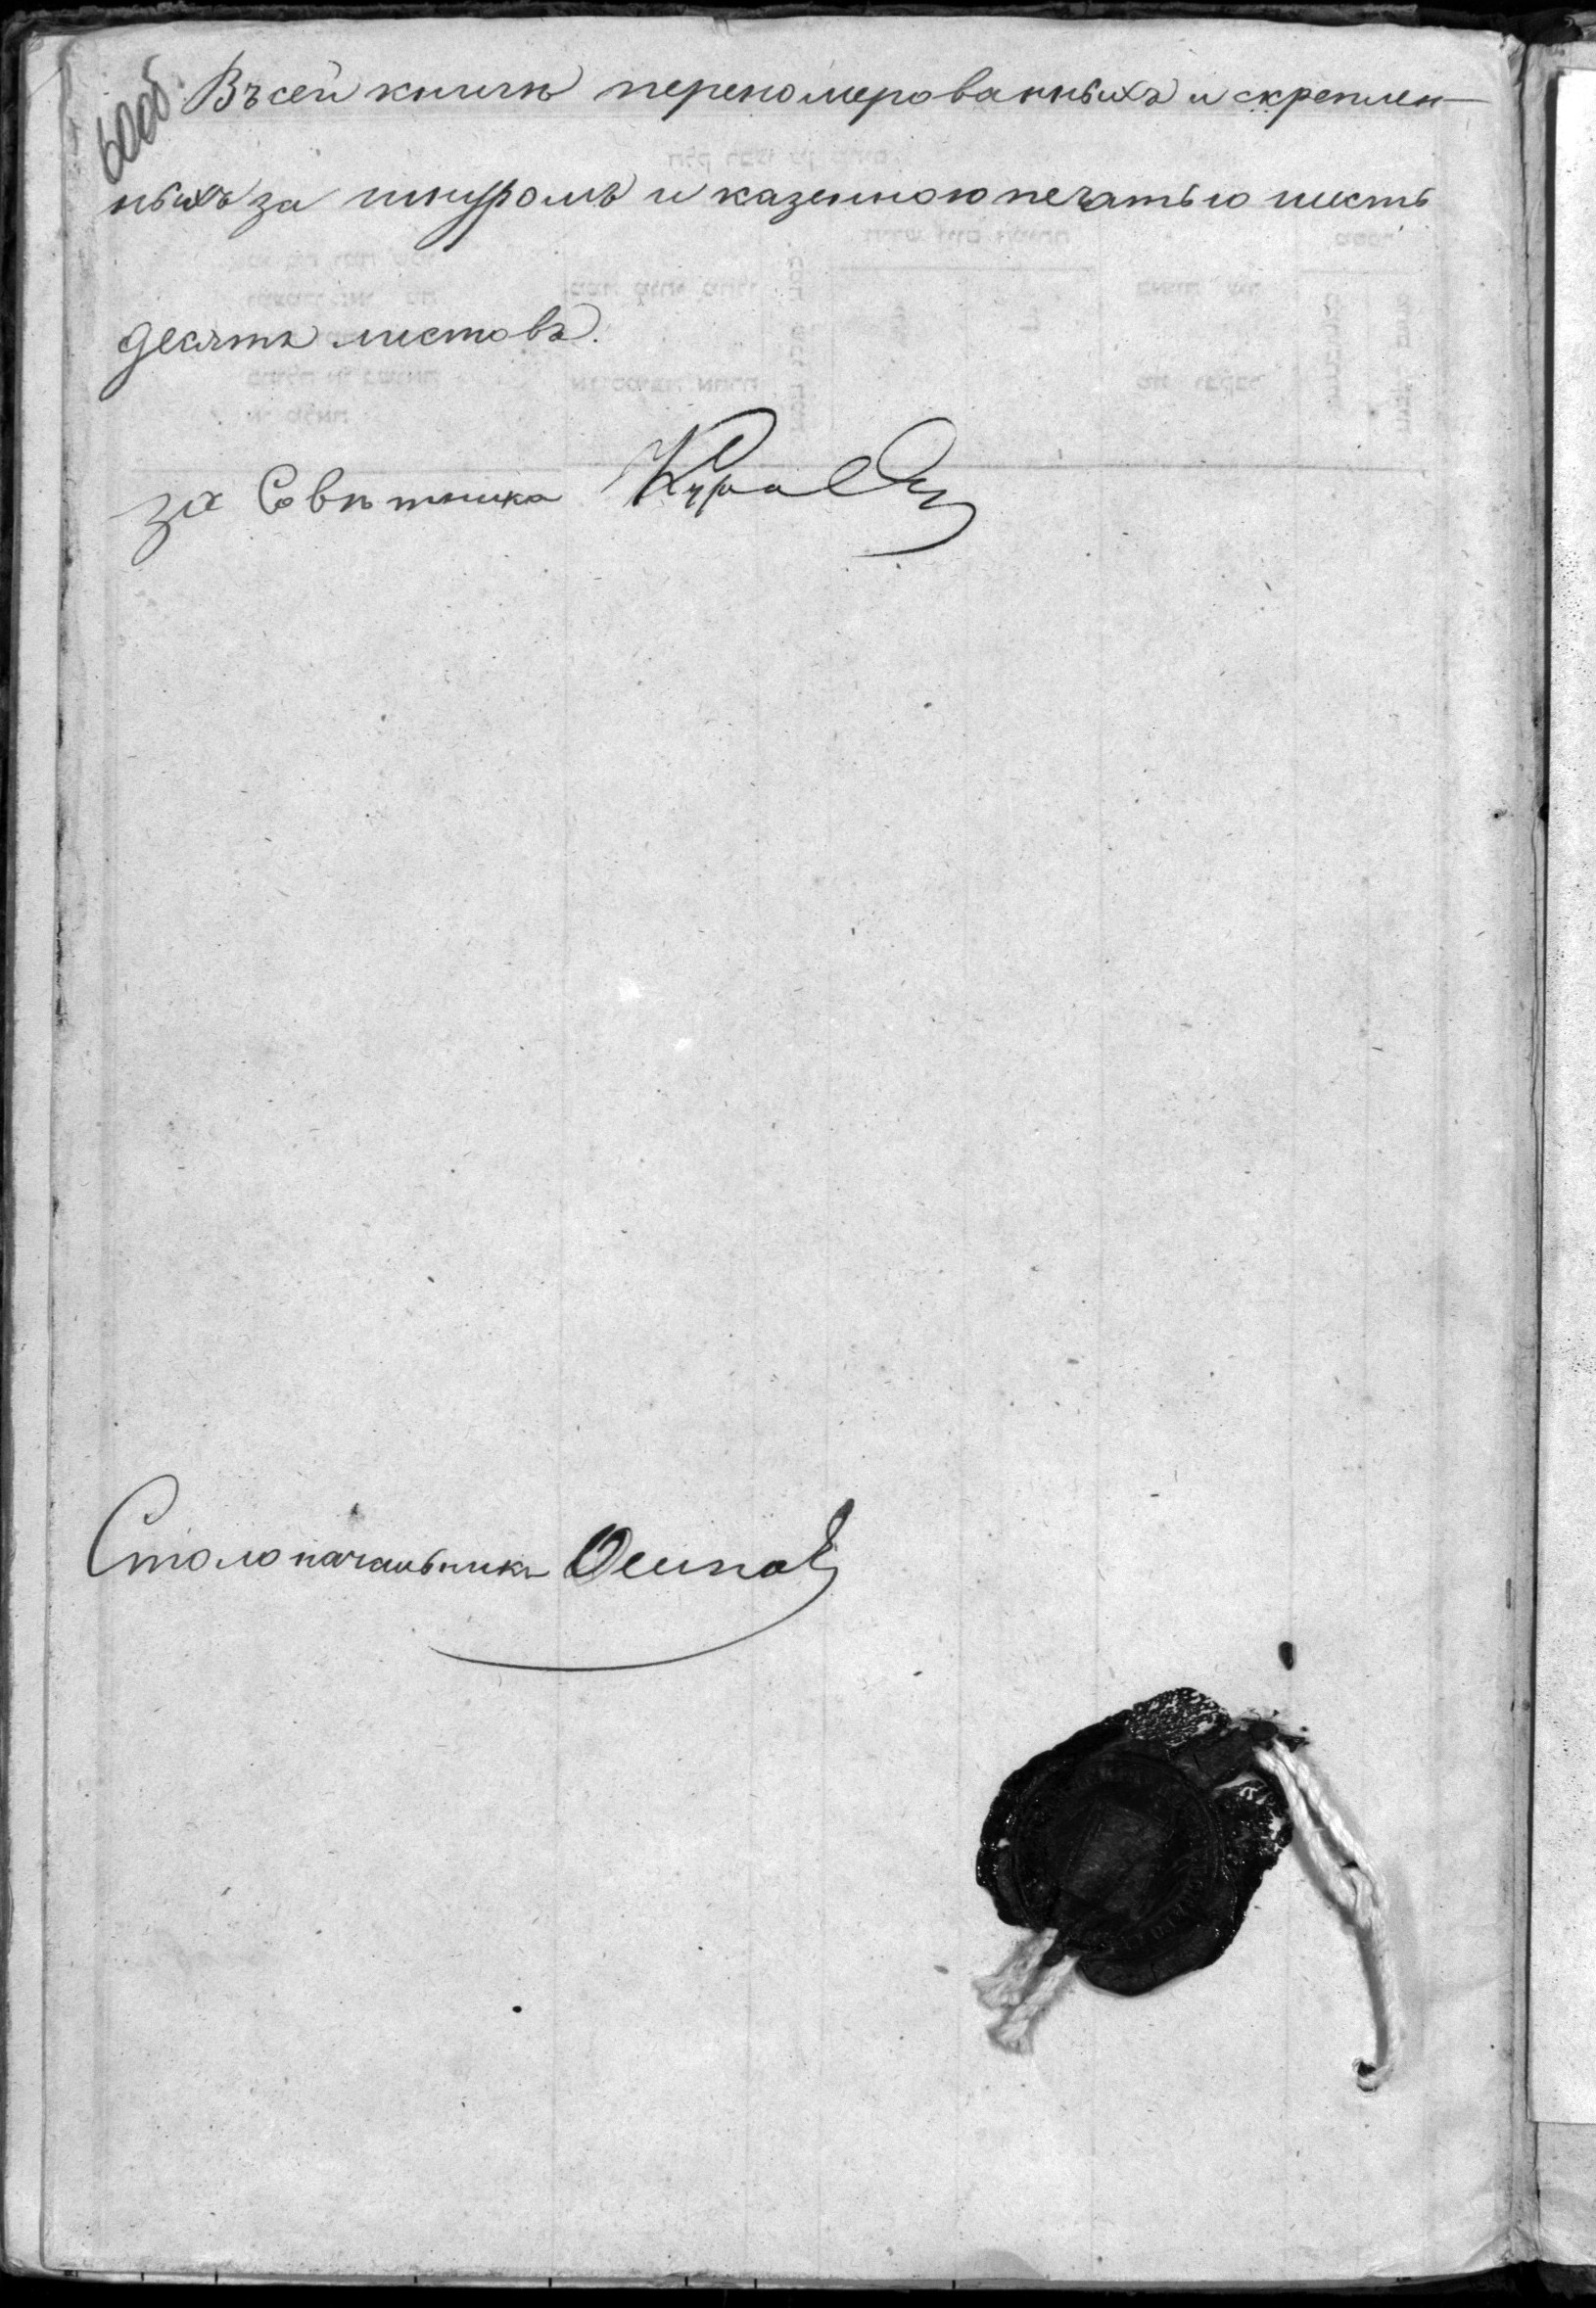 60об.
Въ сей книгѣ перенумерованныхъ и скреплен-
ныхъ за шнуромъ и казенною печатью шесть
десятъ листовъ.
за Совѣтника
Столоначальника Осипов